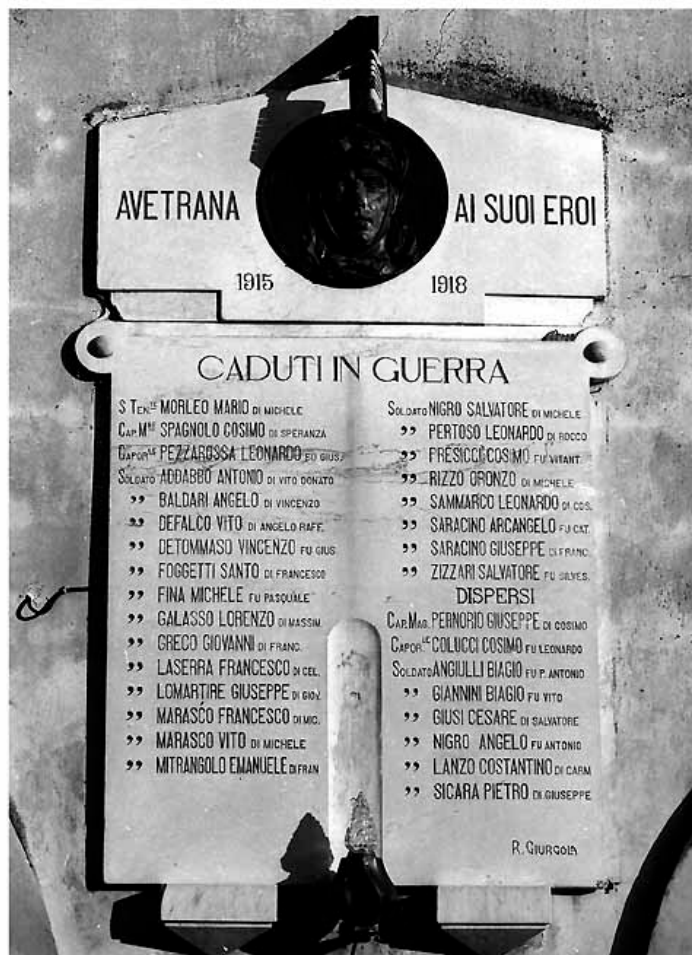 AVETRANA AI SUOI EROI
1915 1918
CADUTI IN GUERRA
S TEN.TE MORLEO MARIO DI MICHELE
CAP. M.RE SPAGNOLO COSIMO DI SPERANZA
CAPOR.LE PEZZAROSSA LEONARDO FU GIUS.
SOLDATO ADDABBO ANTONIO DI VITO DONATO
" BALDARI ANGELO DI VINCENZO
" DEFALCO VITO DI ANGELO RAFF.
" DETOMMASO VINCENZO FU GIUS.
" FOGGETTI SANTO DI FRANCESCO
" FINA MICHELE FU PASQUALE
" GALASSO LORENZO DI MASSIM.
" GRECO GIOVANNI DI FRANC.
" LASERRA FRANCESCO DI CEL.
" LOMARTIRE GIUSEPPE DI GIOV.
" MARASCO FRANCESCO DI MIC.
" MARASCO VITO DI MICHELE
" MITRANGOLO EMANUELE DI FRAN
SOLDATO NIGRO SALVATORE DI MICHELE
" PERTOSO LEONARDO DI ROCCO
" PRESICCI COSIMO FU VITANT.
" RIZZO ORONZO DI MICHELE
" SAMMARCO LEONARDO DI COS.
" SARACINO ARCANGELO FU CAT.
" SARACINO GIUSEPPE DI FRANC.
" ZIZZARI SALVATORE FU SILVES.
DISPERSI
CAP. MAG. PERNORIO GIUSEPPE DI COSIMO
CAPOR.LE COLUCCI COSIMO FU LEONARDO
SOLDATO ANGIULLI BIAGIO FU P. ANTONIO
" GIANNINI BIAGIO FU VITO
" GIUSI CESARE DI SALVATORE
" NIGRO ANGELO FU ANTONIO
" LANZO COSTANTINO DI CARM
" SICARA PIETRO DI GIUSEPPE
R. GIURGOLA